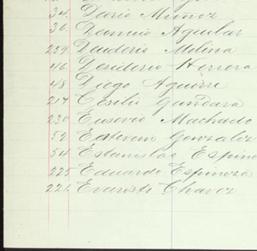 34 Dario Muñoz
36 Damacio Aguilar
229 Desiderio Molina
46 Desiderio Herrera
48 Diego Aguirre
217 Cesilio Gandara
230 Eusevio Machado
52 Gonzalez
54 Estanislao Espino
225 Eduardo Espinoza
226 Evaristo Chavez